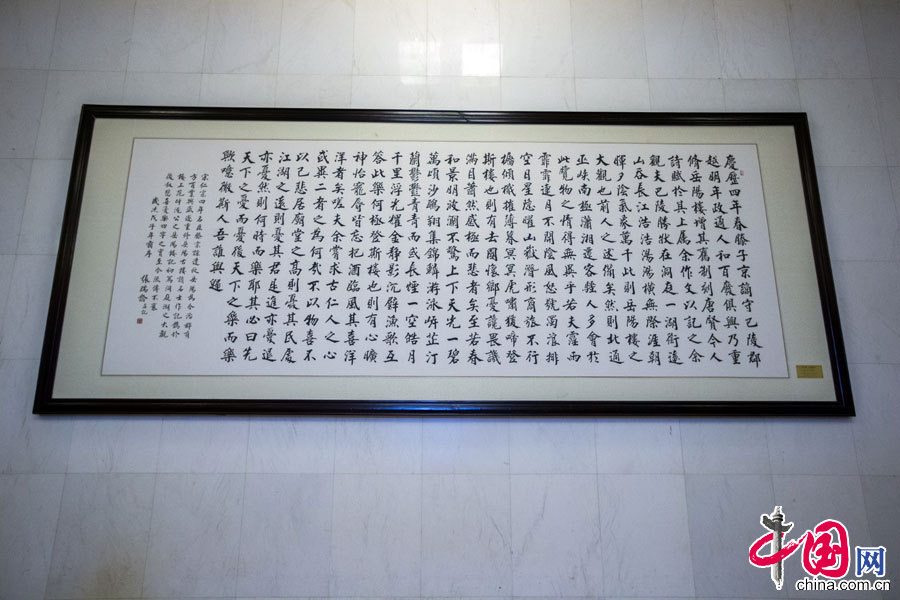 慶歷四年春滕子京謫守巴陵郡
越明年政通人和百廢俱興乃重
脩岳陽樓增其舊制刻唐賢今人
詩賦於其上屬余作文以記之余
觀夫巴陵勝狀在洞庭一湖銜遠
山吞長江浩浩湯湯橫無際涯朝
暉夕陰氣象萬千此則岳陽樓之
大觀也前人之述備矣然則北通
巫峽南極瀟湘遷客騷人多會於
此覽物之情得無異乎若夫霪雨
霏霏連月不開陰風怒號濁浪排
空日星隱耀山嶽潛形商旅不行
檣傾楫摧薄暮冥冥虎嘯猿啼登
斯樓也則有去國懷鄉憂讒畏譏
滿目蕭然感極而悲者矣至若春
和景明波瀾不驚上下天光一碧
萬頃沙鷗翔集錦鱗游泳岸芷汀
蘭鬱鬱青青而或長煙一空皓月
千里浮光耀金靜影沉璧漁歌互
答此樂何極登斯樓也則有心曠
神怡寵辱皆忘把酒臨風其喜洋
洋者矣嗟夫余嘗求古仁人之心
或異二者之為何哉不以物喜不
以己悲居廟堂之高則憂其民處
江湖之遠則憂其君是進亦憂退
亦憂然則何時而樂耶其必曰先
天下之憂而憂後天下之樂而樂
歟噫微斯人吾誰與歸
宋仁宗四年
張瑞齡
中国网
china.com.cn